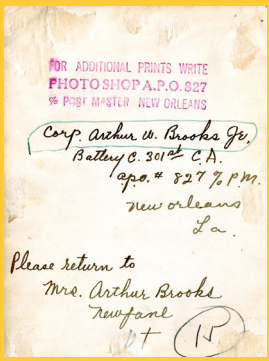 FOR ADDITIONAL PRINTS WRITE
PHOTO SHOP A.P.O. 827
% POST MASTER NEW ORLEANS
Corp. Arthur W. Brooks Jr.
Battery C. 301st C.A.
a.p.o. # 827 % P.M.
New Orleans
La.
Please return to
Mrs. Arthur Brooks
Newfane
Vt
15